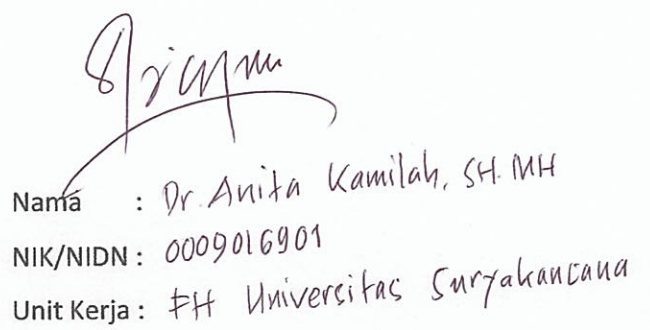 Nama : Dr. Anita Kamilah, SH. MH
NIK/NIDN : 0009016901
Unit Kerja : FH Universitas Suryakancana